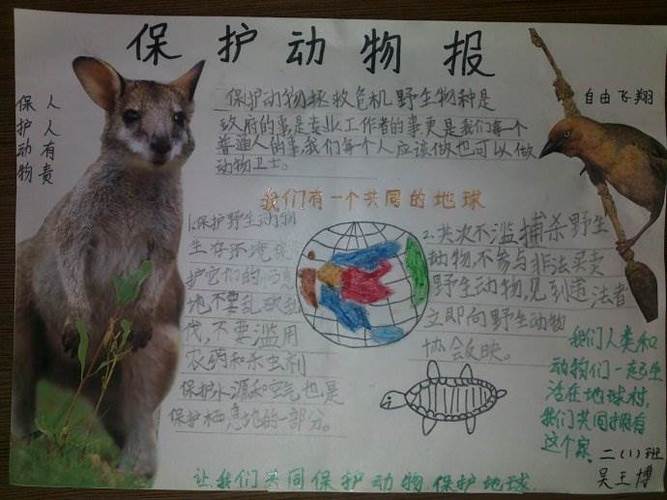 保护动物报
保护动物
人人有责
保护动物拯救危机野生物种是
政府的事是专业工作者的事更是我们每一个
普通人的事我们每个人应该做也可以做
动物卫士。
自由飞翔
我们有一个共同的地球
1.保护野生动物
生存环境
护它们的
地不要乱砍乱
伐,不要滥用
农药和杀虫剂
保护水源和空气也是
保护栖息地的一部分。
2.共次不滥捕杀野生
动物,不参与非法买卖
野生动物,见到违法者
立即向野生动物
协会反映。
我们人类和
动物们一起生
活在地球村,
我们共同拥有
这个家
二(1)班
吴王博
让我们共同保护动物保护地球